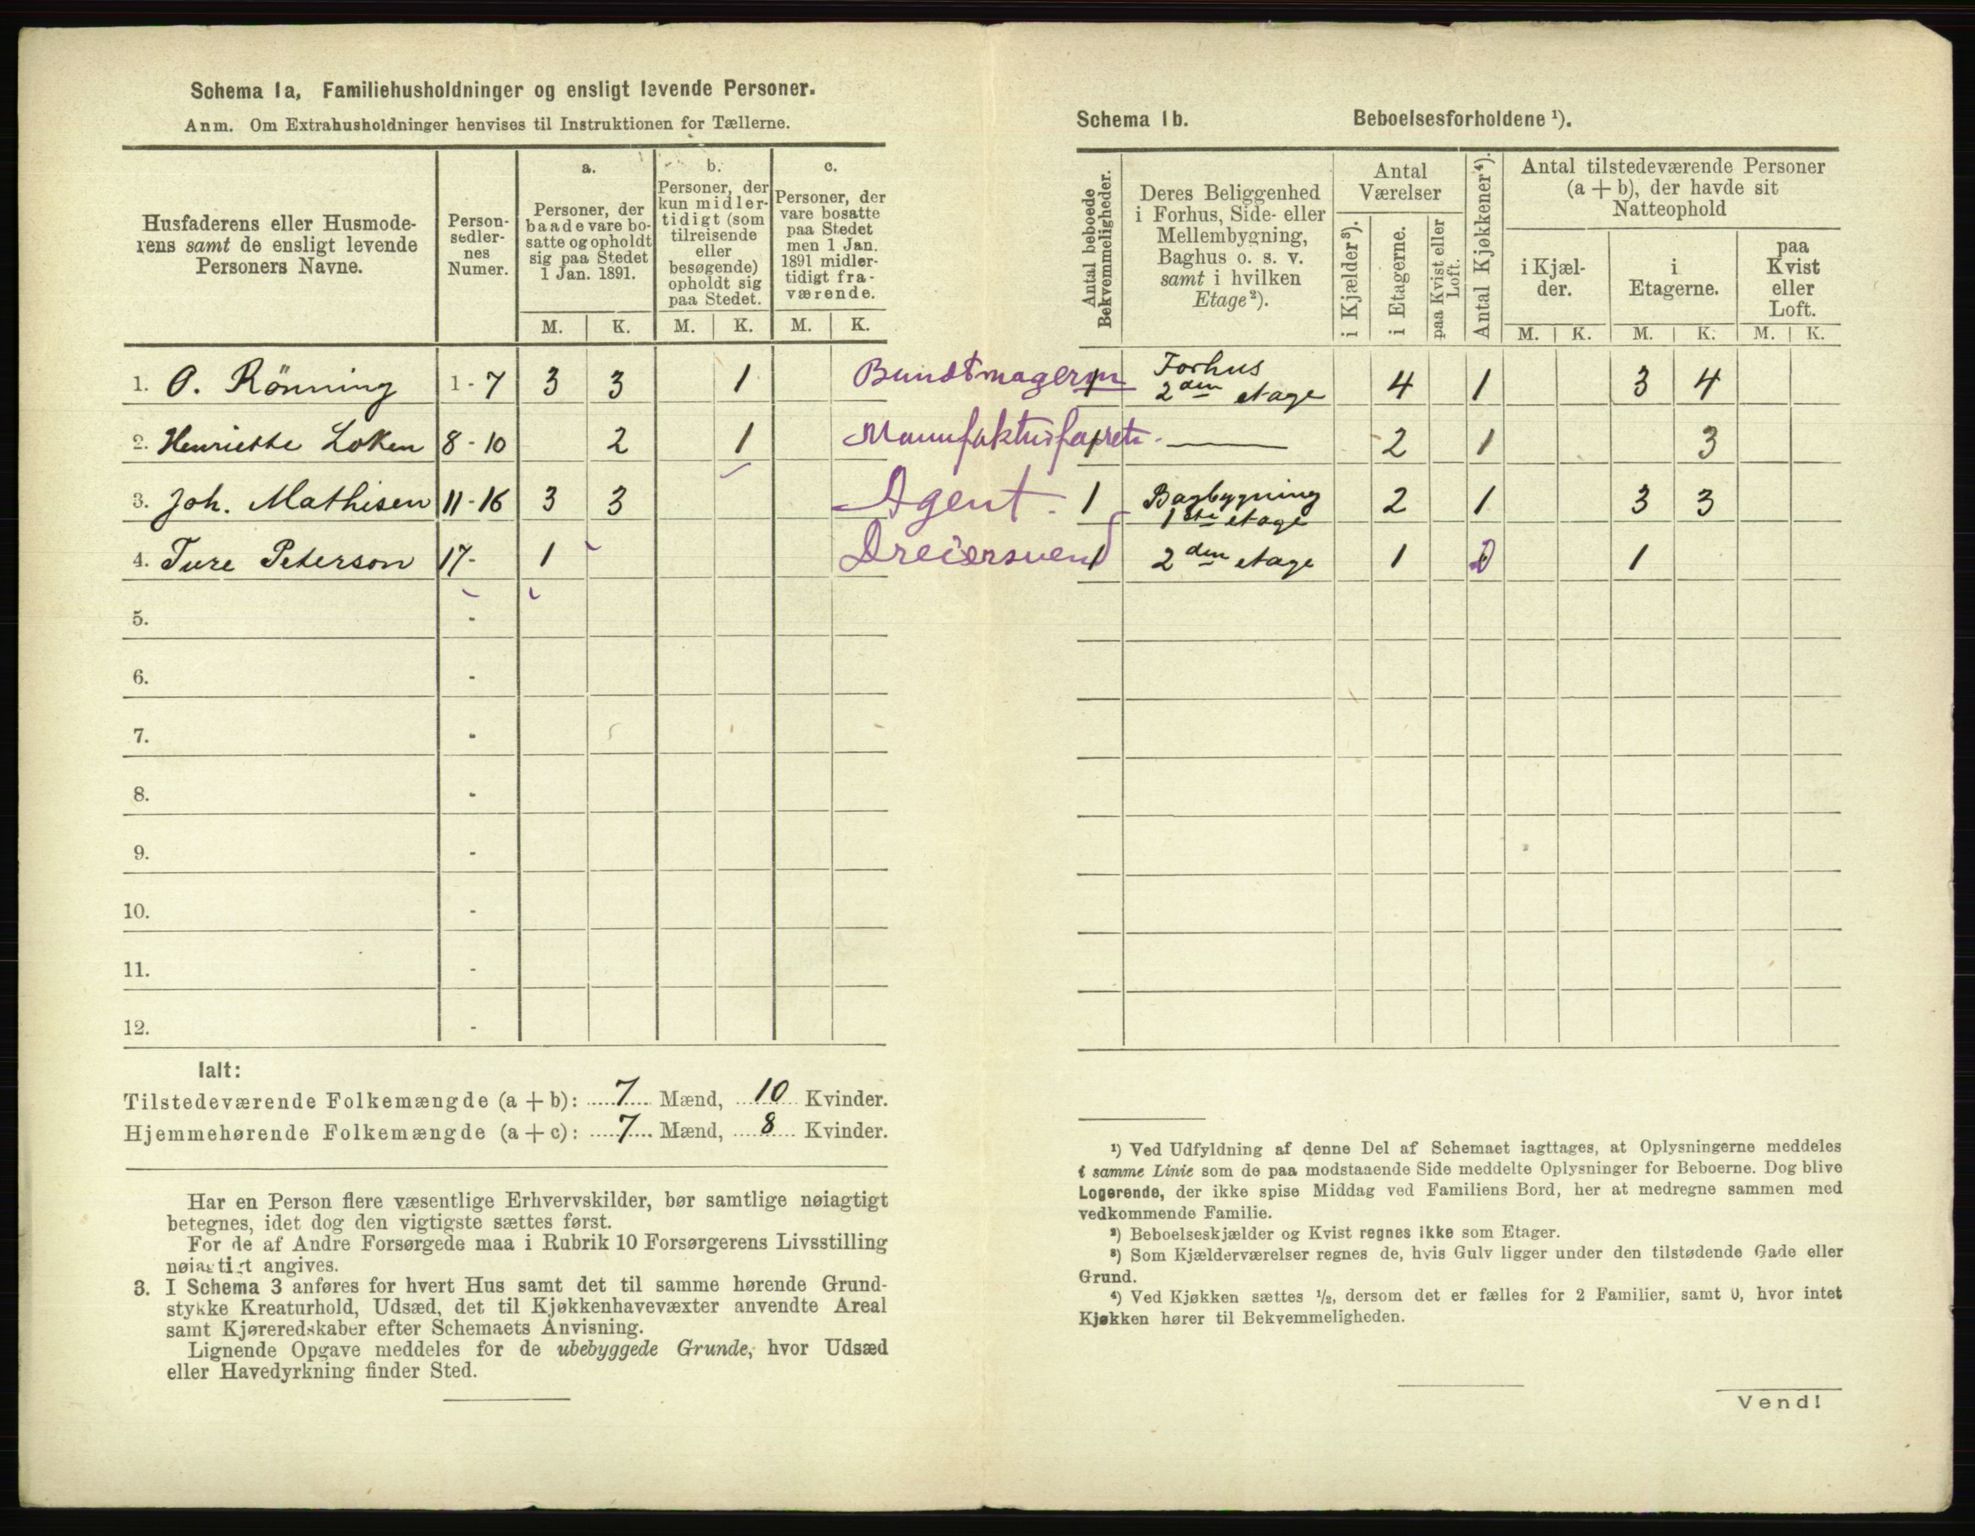 Schema 1a, Familiehusholdninger og ensligt levende Personer.
Anm. Om Extrahusholdninger henvises til Instruktionen for Tællerne.
Husfaderens eller Husmode-
rens samt de ensligt levende
Personers Navne.
Person-
sedler-
nes
Numer.
a.
Personer, der
baade vare bo-
satte og opholdt
sig paa Stedet
1 Jan. 1891.
b.
Personer, der
kun midler-
tidigt (som
tilreisende
eller
besøgende)
opholdt sig
paa Stedet.
c.
Personer, der
vare bosatte
paa Stedet
men 1 Jan.
1891 midler-
tidigt fra-
værende.
M. K. M. K. M. K.
1. O. Rönning 1-7 3 3 1 Bundtmagerm
2. Henriette Loken 8-10 2 1
3. Joh. Mathisen 11-16 3 3 Agent.
4. Ture Peterson 17- 1 Dreiersvend
5. -
6. -
7. -
8. -
9. -
10. -
11. -
12. -
Ialt:
Tilstedeværende Folkemængde (a + b): 7 Mænd, 10 Kvinder.
Hjemmehørende Folkemængde (a + c): 7 Mænd, 8 Kvinder.
Har en Person flere væsentlige Erhvervskilder, bør samtlige nøiagtigt
betegnes, idet dog den vigtigste sættes først.
For de af Andre Forsørgede maa i Rubrik 10 Forsørgerens Livsstilling
nøiagtigt angives.
3. I Schema 3 anføres for hvert Hus samt det til samme hørende Grund-
stykke Kreaturhold, Udsæd, det til Kjøkkenhavevæxter anvendte Areal
samt Kjøreredskaber efter Schemaets Anvisning.
Lignende Opgave meddeles for de ubebyggede Grunde, hvor Udsæd
eller Havedyrkning finder Sted.
Schema 1b. Beboelsesforholdene ¹).
Antal beboede
Bekvemmeligheder.
Deres Beliggenhed
i Forhus, Side- eller
Mellembygning,
Baghus o. s. v.
samt i hvilken
Etage ²).
Antal
Værelser
i Kjælder ³).
i Etagerne.
paa Kvist eller
Loft.
Antal Kjøkkener ⁴).
Antal tilstedeværende Personer
(a + b), der havde sit
Natteophold
i Kjæl-
der.
i
Etagerne.
paa
Kvist
eller
Loft.
M. K. M. K. M. K.
1 Forhus
2den etage 4 1 3 4
1 — 2 1 3
1 Bagbygning
1ste etage 2 1 3 3
1 2den etage 1 0 1
¹) Ved Udfyldning af denne Del af Schemaet iagttages, at Oplysningerne meddeles
i samme Linie som de paa modstaaende Side meddelte Oplysninger for Beboerne. Dog blive
Logerende, der ikke spise Middag ved Familiens Bord, her at medregne sammen med
vedkommende Familie.
²) Beboelseskjælder og Kvist regnes ikke som Etager.
³) Som Kjælderværelser regnes de, hvis Gulv ligger under den tilstødende Gade eller
Grund.
⁴) Ved Kjøkken sættes ½, dersom det er fælles for 2 Familier, samt 0, hvor intet
Kjøkken hører til Bekvemmeligheden.
Vend!